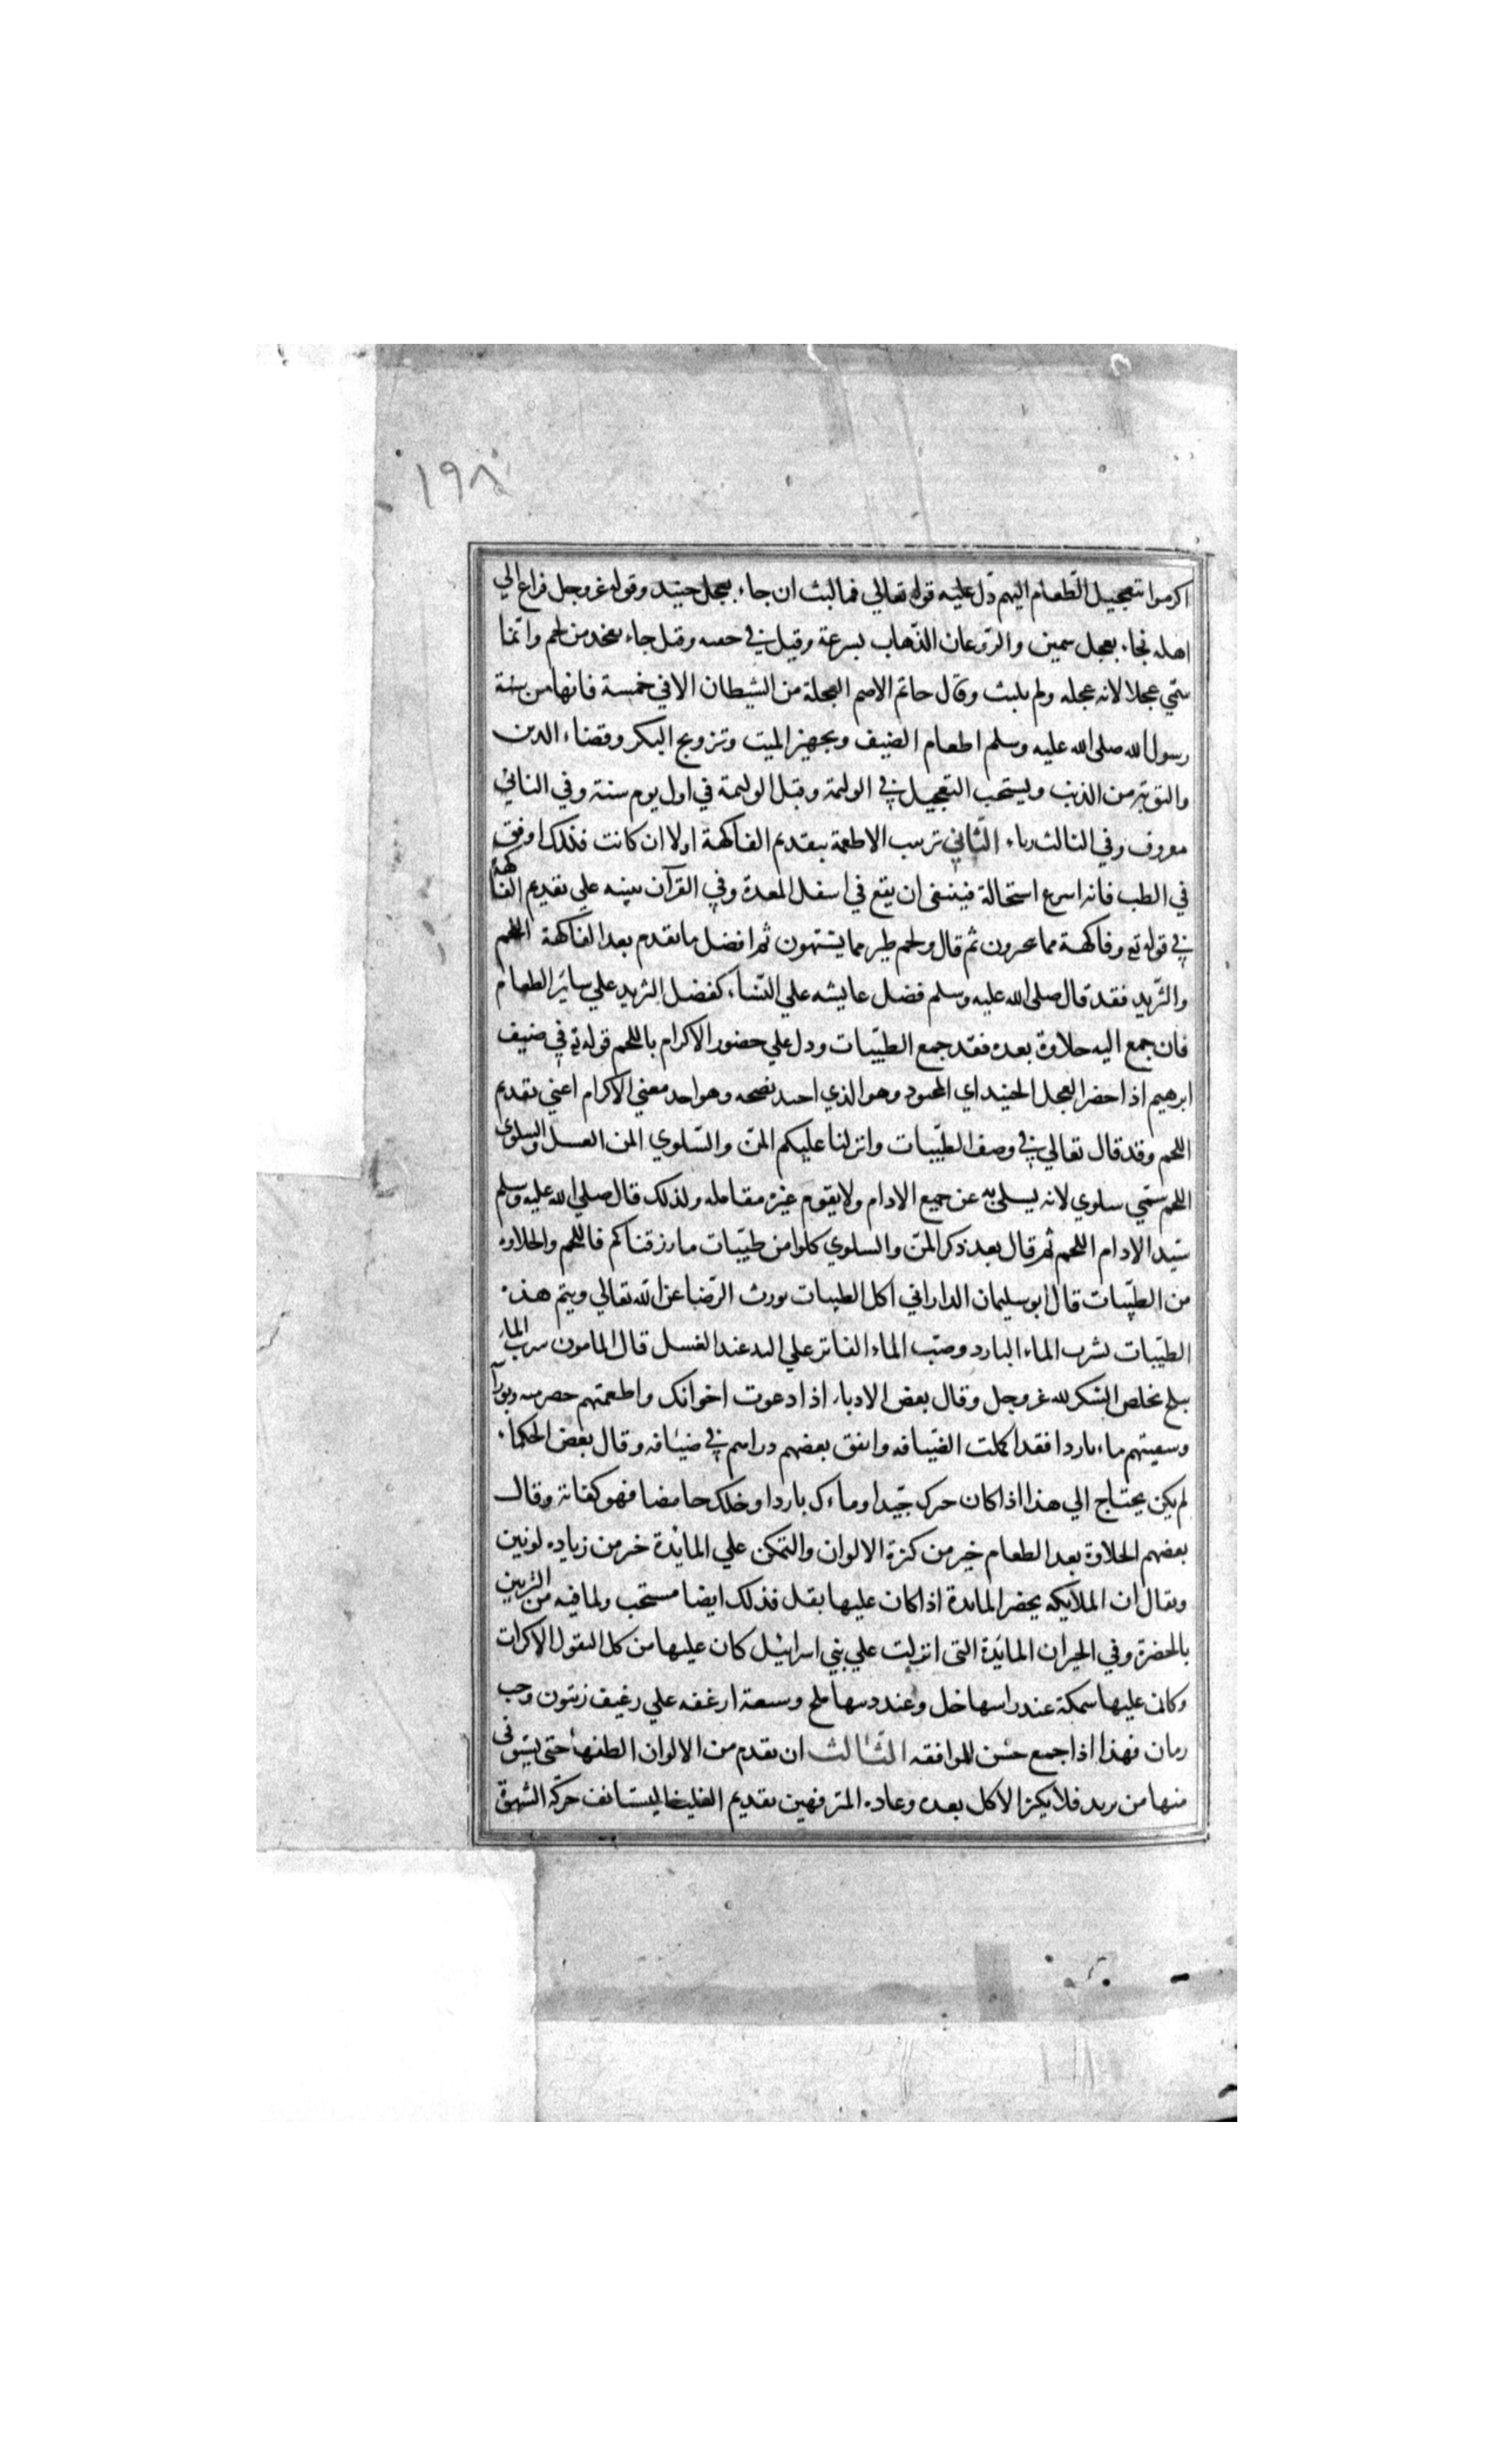 ١٩٨
اكرموا بتعجيل الطعام اليهم دل عليه قوله تعالي فما لبث ان جاء بعجل حنيذ وقوله عز وجل فراغ الي
اهله فجاء بعجل سمين والروغان الذهاب بسرعة وقيل في خفيه وقيل جاء بفخذ من لحم وانما
سمي عجلا لانه عجله ولم يلبث وقال حاتم الاصم العجلة من الشيطان الا في خمسة فانها من سنة
رسول الله صلى الله عليه وسلم اطعام الضيف وتجهيز الميت وتزويج البكر وقضاء الدين
والتوبة من الذنب ويستحب التعجيل في الوليمة وقيل الوليمة في اول يوم سنة وفي الثاني
معروف وفي الثالث رياء الثاني ترتيب الاطعمة بتقديم الفاكهة اولا ان كانت فذلك اوفق
في الطب فانه اسرع استحالة فينبغي ان يقع في اسفل المعدة وفي القرآن تنبيه علي تقديم الفاكهة
في قوله تع وفاكهة مما يتخيرون ثم قال ولحم طير مما يشتهون ثم افضل ما تقدم بعد الفاكهة اللحم
والثريد فقد قال صلى الله عليه وسلم فضل عايشه علي النساء كفضل الثريد علي سائر الطعام
فان جمع اليه حلاوة بعده فقد جمع الطيبات ودل علي حضور الاكرام باللحم قوله تع في ضيف
ابرهيم اذا حضر العجل الحنيذ اي المحنوذ وهو الذي اجيد نضجه وهو احد معني الاكرام اعني تقديم
اللحم وقد قال تعالي في وصف الطيبات وانزلنا عليكم المن والسلوي المن العسل والسلوي
اللحم سمي سلوي لانه يسلي به عن جميع الادام ولا يقوم غيره مقامه ولذلك قال صلي الله عليه وسلم
سيد الادام اللحم ثم قال بعد ذكر المن والسلوي كلوا من طيبات ما رزقناكم فاللحم والحلاوه
من الطيبات قال ابو سليمان الداراني اكل الطيبات يورث الرضا عن الله تعالي ويتم هذه
الطيبات بشرب الماء البارد وصب الماء الفاتر علي اليد عند الغسل قال المامون شرب الماء
بثلج يخلص الشكر لله عز وجل وقال بعض الادباء اذا دعوت اخوانك واطعمتهم حصرميه وبورا
وسقيتهم ماء باردا فقد اكملت الضيافه وانفق بعضهم دراهم في ضيافه وقال بعض الحكماء
لم يكن يحتاج الي هذا اذا كان خبزك جيدا وماءك باردا وخلك حامضا فهو كفاية وقال
بعضهم الحلاوة بعد الطعام خير من كثرة الالوان والتمكن علي المائدة خير من زياده لونين
ويقال ان الملايكه تحضر المايدة اذا كان عليها بقل فذلك ايضا مستحب ولما فيه من التزيين
بالخضرة وفي الخبر ان المائدة التي انزلت علي بني اسرائيل كان عليها من كل البقول الا الكراث
وكان عليها سمكة عند راسها خل وعند ذنبها ملح وسبعة ارغفه علي رغيف زيتون وحب
رمان فهذا اذا جمع حسن للموافقه الثالث ان يقدم من الالوان الطفها حتي يستوفي
منها من يريد فلا يكثر الاكل بعده وعاده المترفهين تقديم الغليظ ليستانف حركة الشهوة